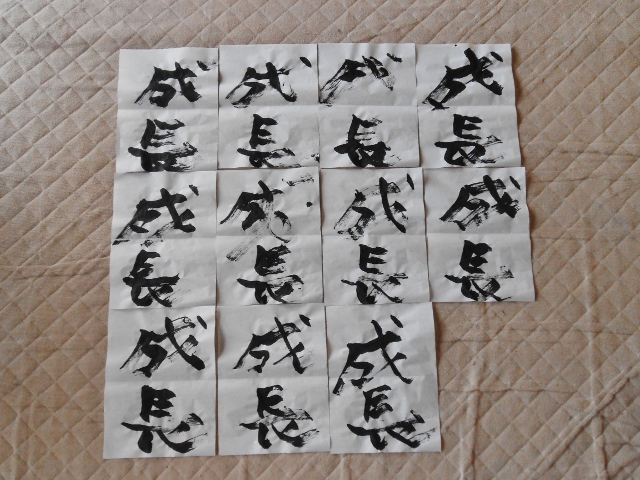 成長
成長
成長
成長
成長
成長
成長
成長
成長
成長
成長